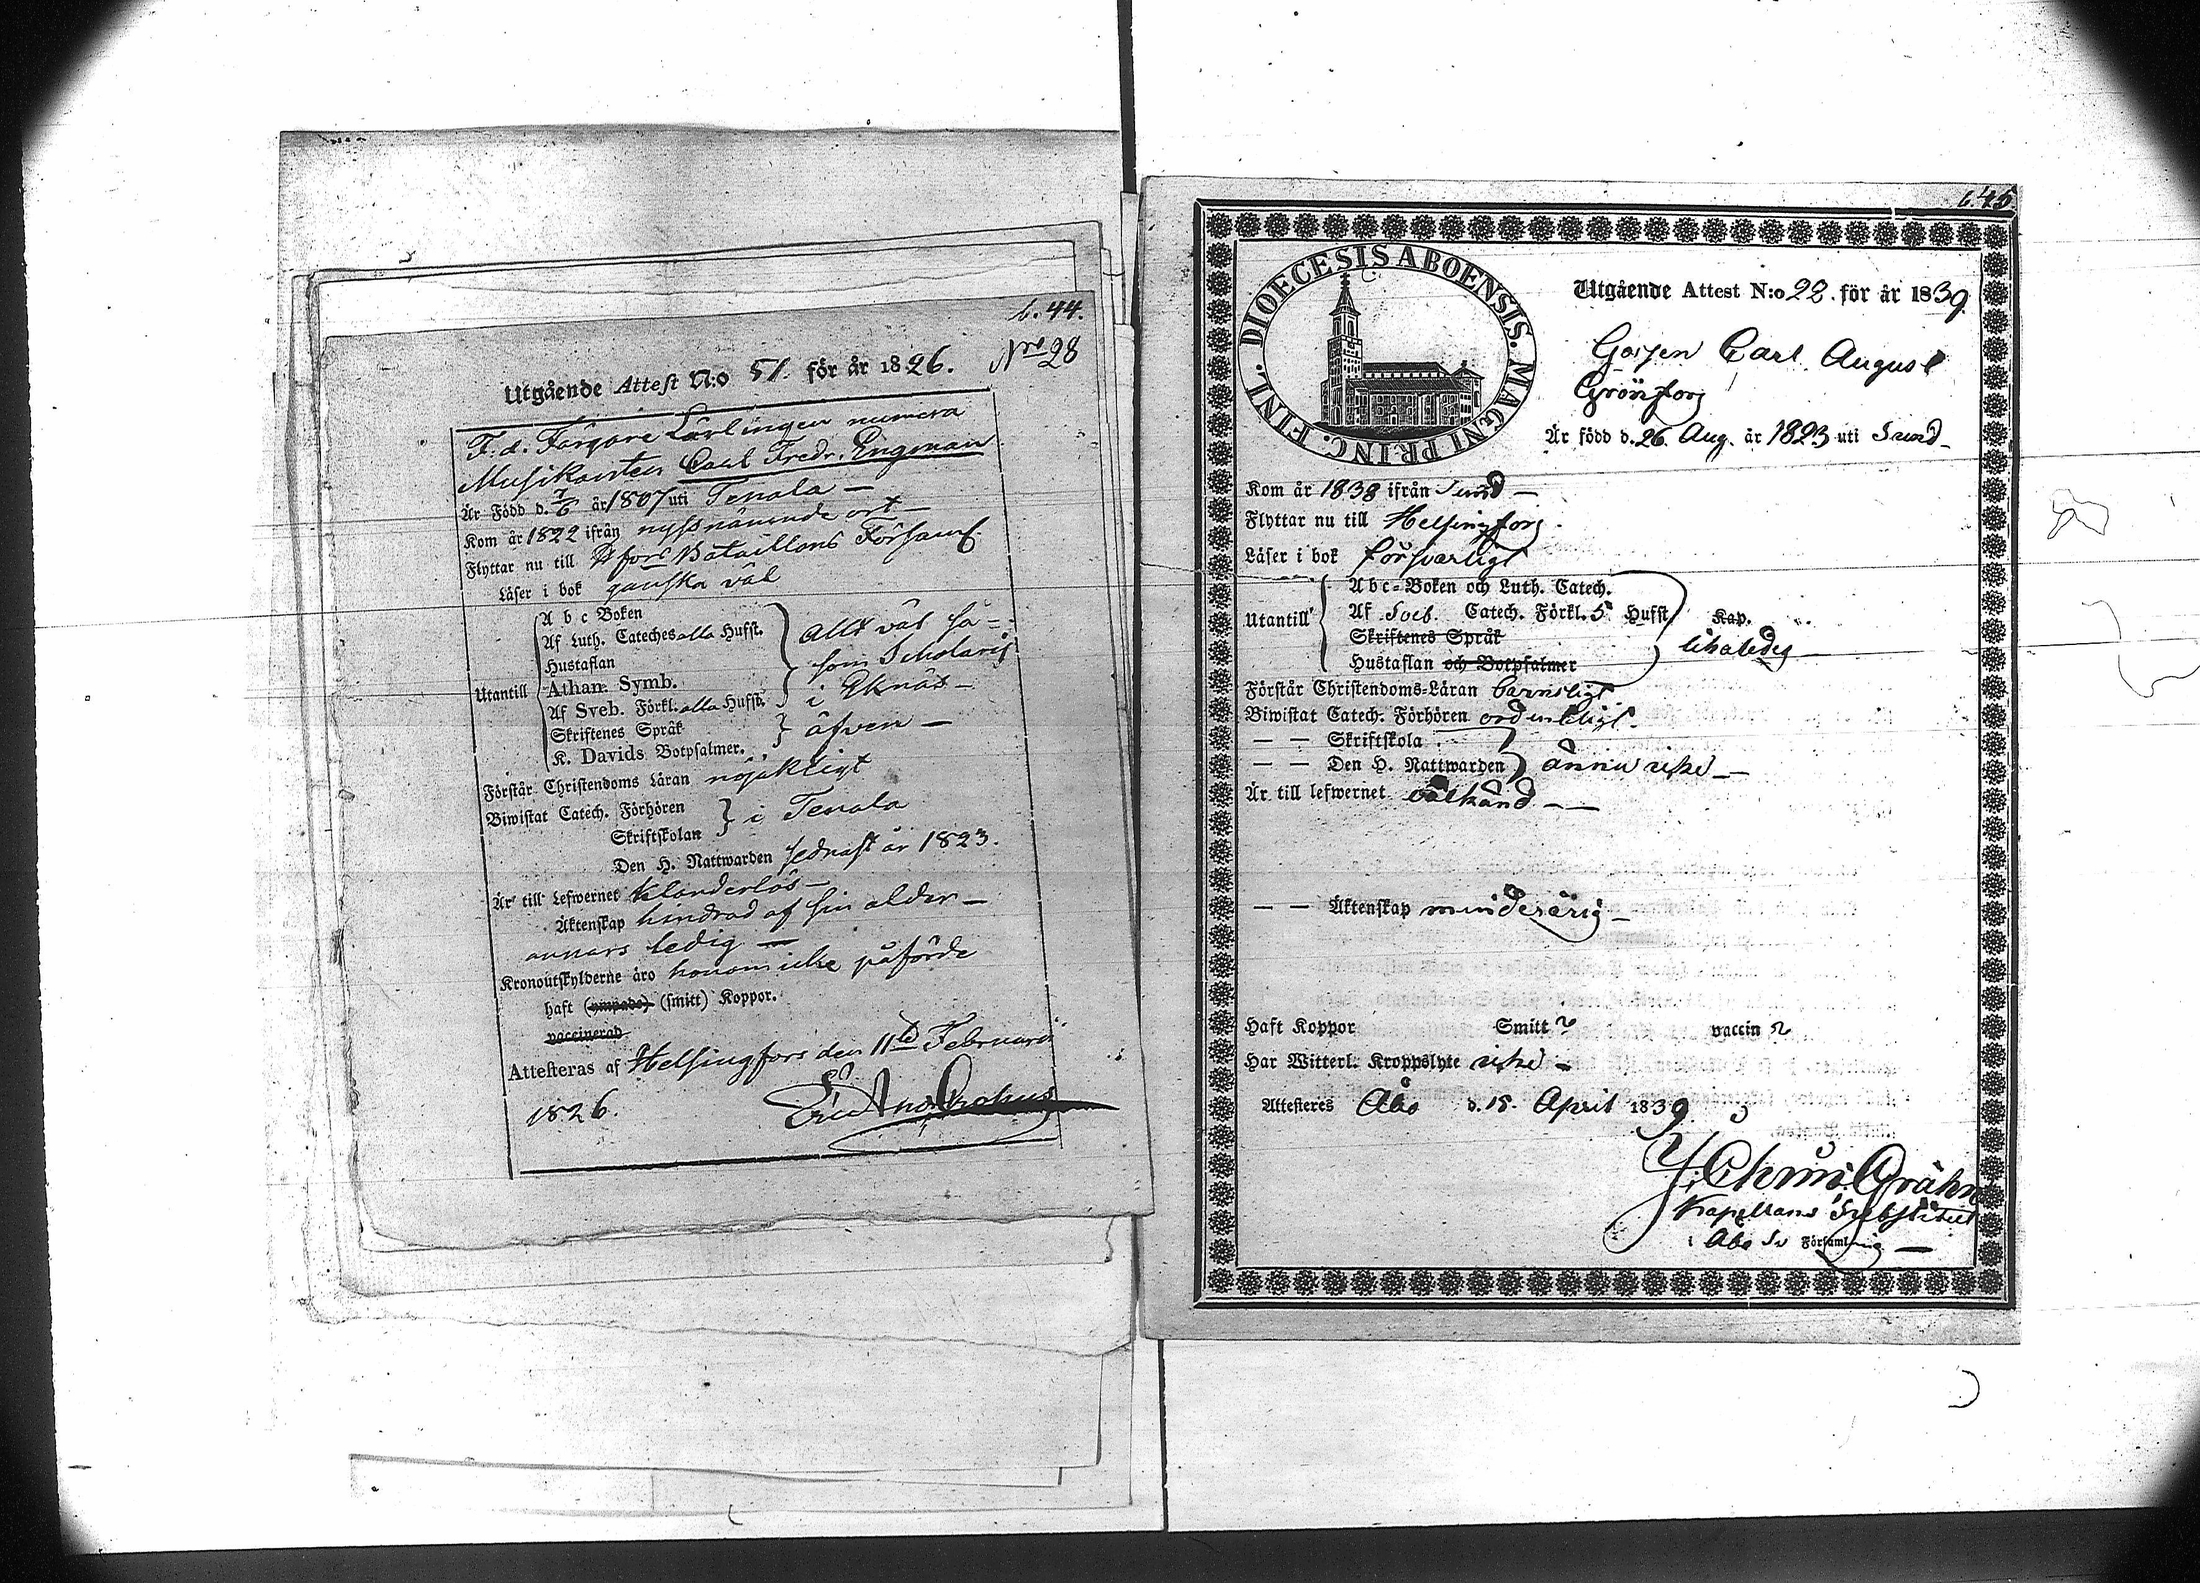 6.44.
Utgående Attest N:o 51. för år 1826. Nro 28
F.d. Färgare Lärlingen numera
Musikanten Carl Fredr. Engman
Är Född d. 7/6 år 1807 uti Tenala —
Kom år 1822 ifrån nyssnämnde ort —
Flyttar nu till H:fors Bataillons Församl.
Läser i bok ganska väl
A b c Boken
Af Luth. Cateches alla Hufst.
Hustaflan
Utantill Athan. Symb.
Af Sveb. Förkl. alla Hufst.
Skriftenes Språk
K. Davids Botpsalmer.
allt väl så-
som Scholaris
i Eknäs —
äfven —
Förstår Christendoms Läran nöjaktigt
Biwistat Catech. Förhören
Skriftskolan } i Tenala
Den H. Nattwarden sednast år 1823.
Är till Lefwernet klanderlös —
Äktenskap hindrad af sin ålder —
annars ledig —
Kronoutskylderne äro honom icke påförde
haft (ympade) (smitt) Koppor.
vaccinerad
Attesteras af Helsingfors den 11te Februarii
1826. Eric And. Crohns
6.45
DIOECESIS ABOENSIS. MAGNI PRINC. FINL.
Utgående Attest N:o 22. för år 1839
Gossen Carl August
Grönfors
Är född d. 26. Aug. år 1823 uti Sund —
Kom år 1838 ifrån Sund —
Flyttar nu till Helsingfors.
Läser i bok försvarligt
A b c-Boken och Luth. Catech.
Utantill Af Sveb. Catech. Förkl. 5 Hufst. Kap.
Skriftenes Språk likaledes
Hustaflan och Botpsalmer
Förstår Christendoms-Läran barnsligt
Biwistat Catech. Förhören ordentligt.
— — Skriftskola
— — Den H. Nattwarden } ännu icke —
Är till lefwernet välkänd —
— — Äktenskap minderårig —
Haft Koppor Smitt ? vaccin ?
Har Witterl. Kroppslyte icke —
Attesteres Åbo d. 15. April 1839.
J. Chr: Grähn
Kapellans Substitut
i Åbo Sv Församling —